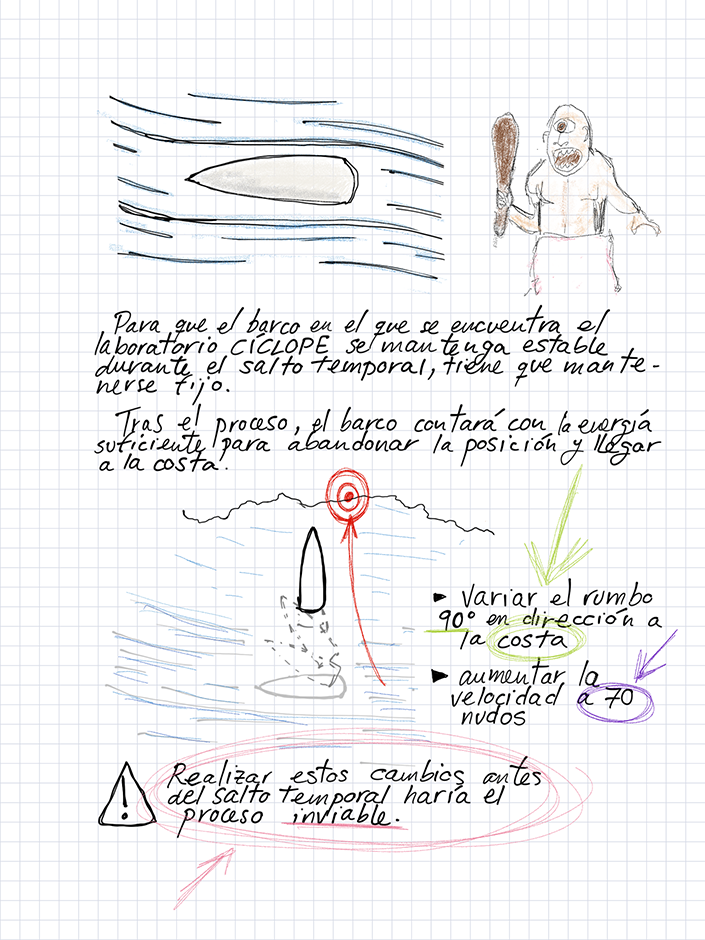 Para que el barco en el que se encuentra el
laboratorio CÍCLOPE se mantenga estable
durante el salto temporal, tiene que mante-
nerse fijo.
Tras el proceso, el barco contará con la energía
suficiente para abandonar la posición y llegar
a la costa.
► Variar el rumbo
90° en dirección a
la costa
► aumentar la
velocidad a 70
nudos
Realizar estos cambios antes
del salto temporal haría el
proceso inviable.